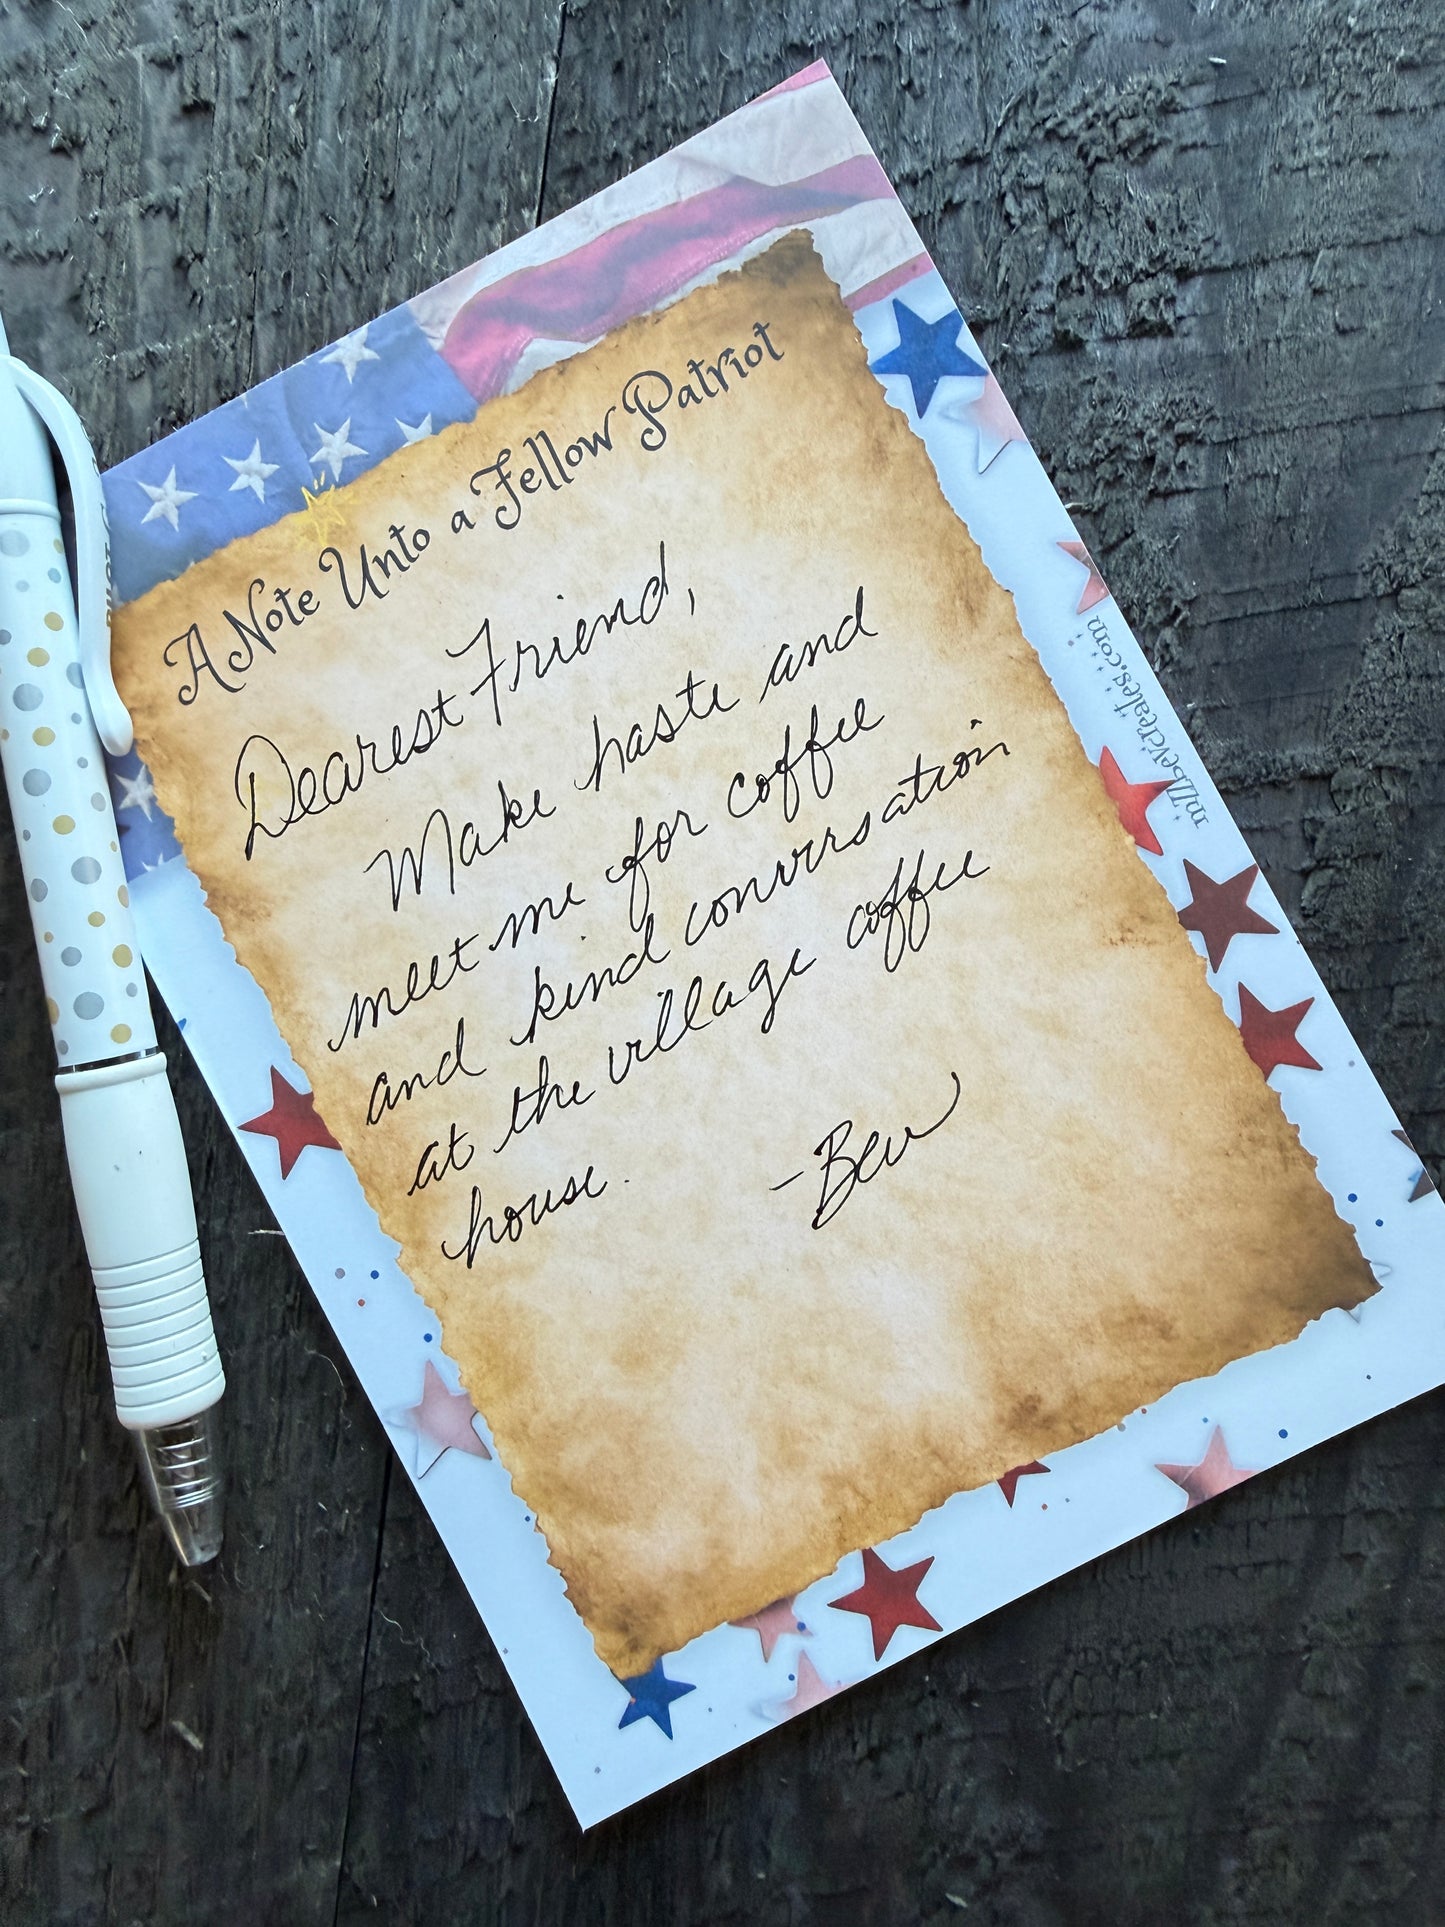 A Note Unto a Fellow Patriot
Dearest Friend,
Make haste and
meet me for coffee
and kind conversation
at the village coffee
house.
-Bev
mZbevcreates.com
PILOT